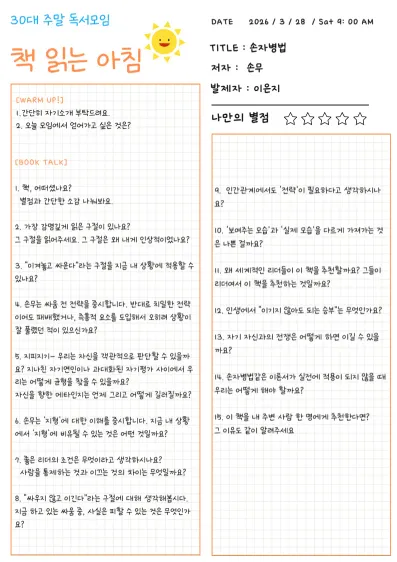 30대 주말 독서모임
책 읽는 아침
DATE 2026 / 3 / 28 / Sat 9:00 AM
TITLE : 손자병법
저자 : 손무
발제자 : 이은지
나만의 별점 ☆☆☆☆☆
[WARM UP!]
1. 간단히 자기소개 부탁드려요.
2. 오늘 모임에서 얻어가고 싶은 것은?
[BOOK TALK]
1. 책, 어떠셨나요?
별점과 간단한 소감 나눠봐요.
2. 가장 감명깊게 읽은 구절이 있나요?
그 구절을 읽어주세요. 그 구절은 왜 내게 인상적이었나요?
3. "이겨놓고 싸운다"라는 구절을 지금 내 상황에 적용할 수
있나요?
4. 손무는 싸움 전 전략을 중시합니다. 반대로 치밀한 전략
이어도 패배했거나, 즉흥적 요소를 도입해서 오히려 상황이
잘 풀렸던 적이 있으신가요?
5. 지피지기- 우리는 자신을 객관적으로 판단할 수 있을까
요? 지나친 자기연민이나 과대평가된 자기평가 사이에서 우
리는 어떻게 균형을 찾을 수 있을까요?
자신을 향한 메타인지는 언제 그리고 어떻게 길러질까요?
6. 손무는 '지형'에 대한 이해를 중시합니다. 지금 내 상황
에서 '지형'에 비유될 수 있는 것은 어떤 것일까요?
7. 좋은 리더의 조건은 무엇이라고 생각하시나요?
사람을 통제하는 것과 이끄는 것의 차이는 무엇일까요?
8. "싸우지 않고 이긴다"라는 구절에 대해 생각해봅시다.
지금 하고 있는 싸움 중, 사실은 피할 수 있는 것은 무엇인가
요?
9. 인간관계에서도 '전략'이 필요하다고 생각하시나
요?
10. '보여주는 모습'과 '실제 모습'을 다르게 가져가는 것
은 나쁜 걸까요?
11. 왜 세계적인 리더들이 이 책을 추천할까요? 그들이
리더여서 이 책을 추천하는 것일까요?
12. 인생에서 "이기지 않아도 되는 승부"는 무엇인가요?
13. 자기 자신과의 전쟁은 어떻게 하면 이길 수 있을
까요?
14. 손자병법같은 이론서가 실전에 적용이 되지 않을 때
우리는 어떻게 해야 할까요?
15. 이 책을 내 주변 사람 한 명에게 추천한다면?
그 이유도 같이 알려주세요